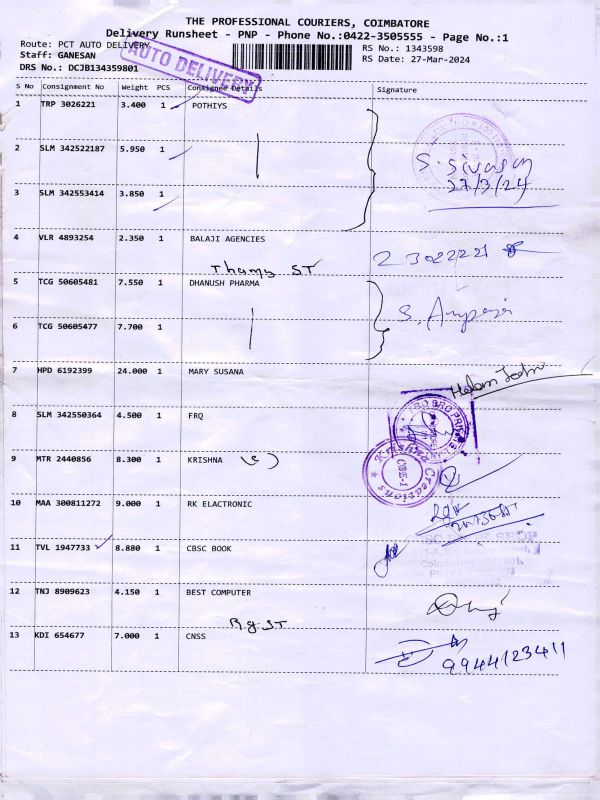 THE PROFESSIONAL COURIERS, COIMBATORE
Delivery Runsheet - PNP - Phone No.:0422-3505555 - Page No.:1
Route: PCT AUTO DELIVERY RS No.: 1343598
Staff: GANESAN RS Date: 27-Mar-2024
DRS No.: DCJB134359801
AUTO DELIVERY
S No Consignment No Weight PCS Consignee Details Signature
1 TRP 3026221 3.400 1 POTHIYS
2 SLM 342522187 5.950 1
S. Sivasan
27/3/24
3 SLM 342553414 3.850 1
4 VLR 4893254 2.350 1 BALAJI AGENCIES
Thamy ST
5 TCG 50605481 7.550 1 DHANUSH PHARMA
6 TCG 50605477 7.700 1
7 HPD 6192399 24.000 1 MARY SUSANA
8 SLM 342550364 4.500 1 FRQ
9 MTR 2440856 8.300 1 KRISHNA
Krishna Creations
CBE-1
10 MAA 300811272 9.000 1 RK ELACTRONIC
11 TVL 1947733 8.880 1 CBSC BOOK
12 TNJ 8909623 4.150 1 BEST COMPUTER
Rg ST
13 KDI 654677 7.000 1 CNSS
9944123411